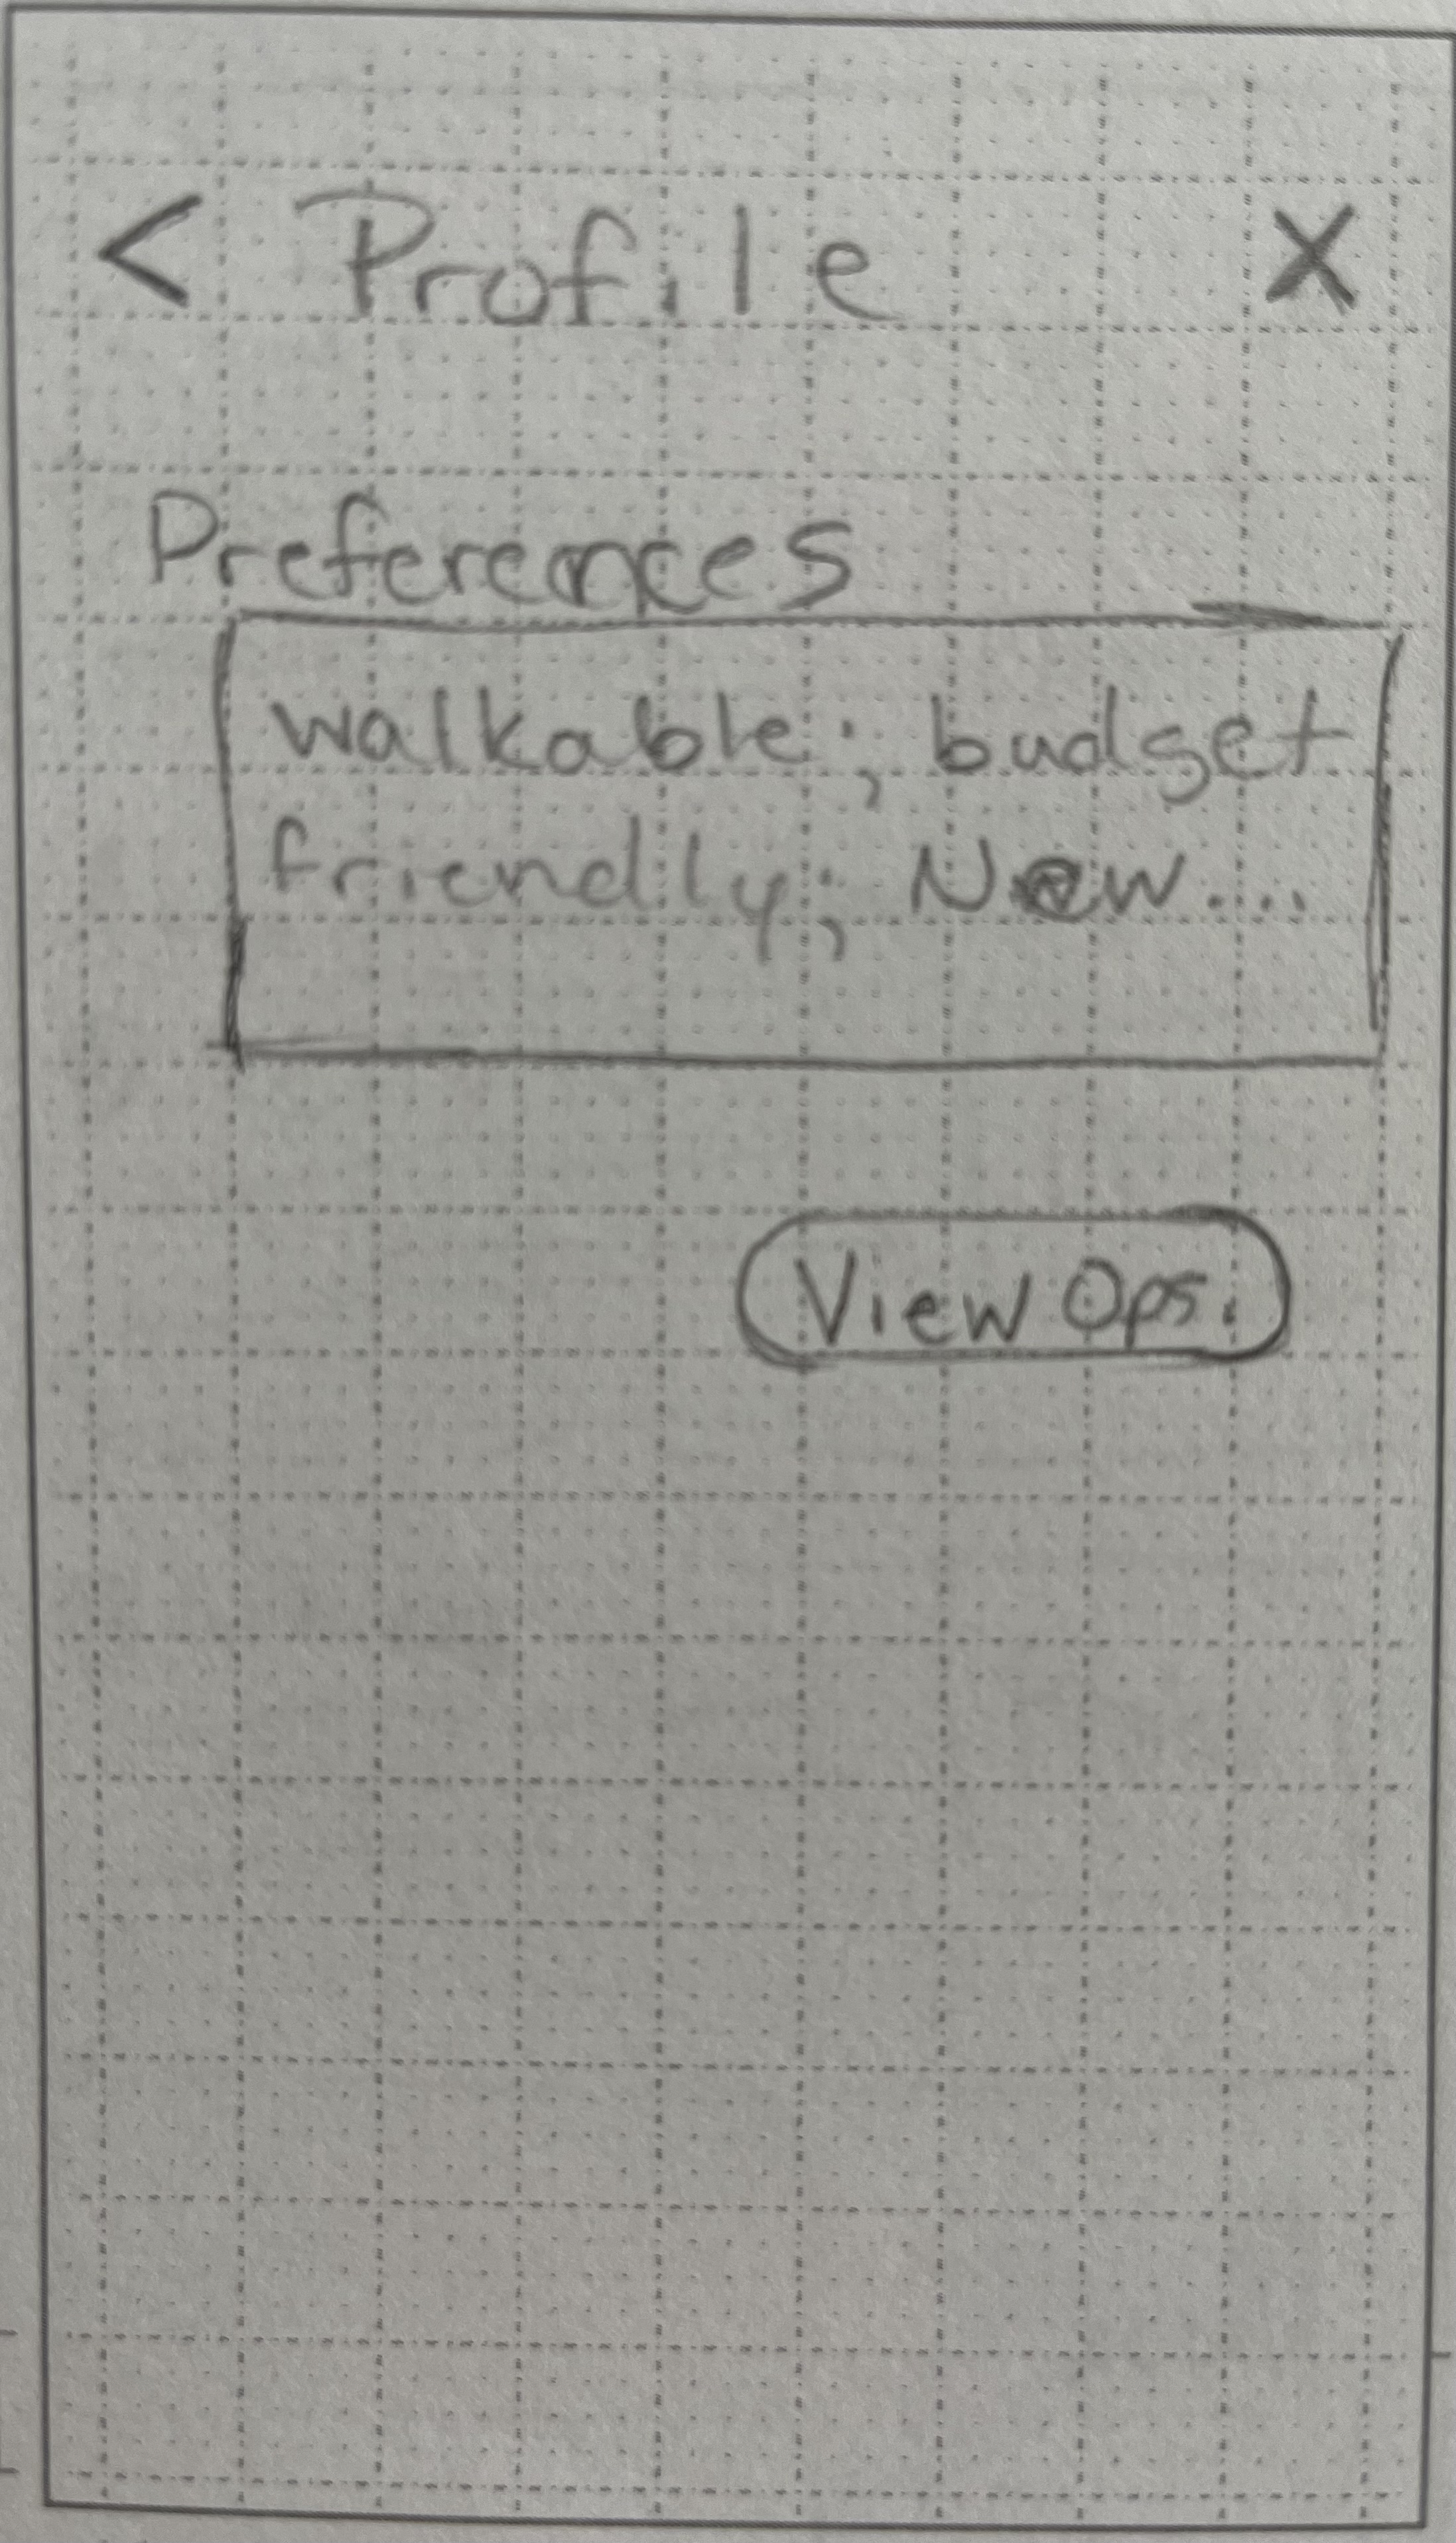 < Profile X
Preferences
walkable; budget
friendly; New...
View Ops.